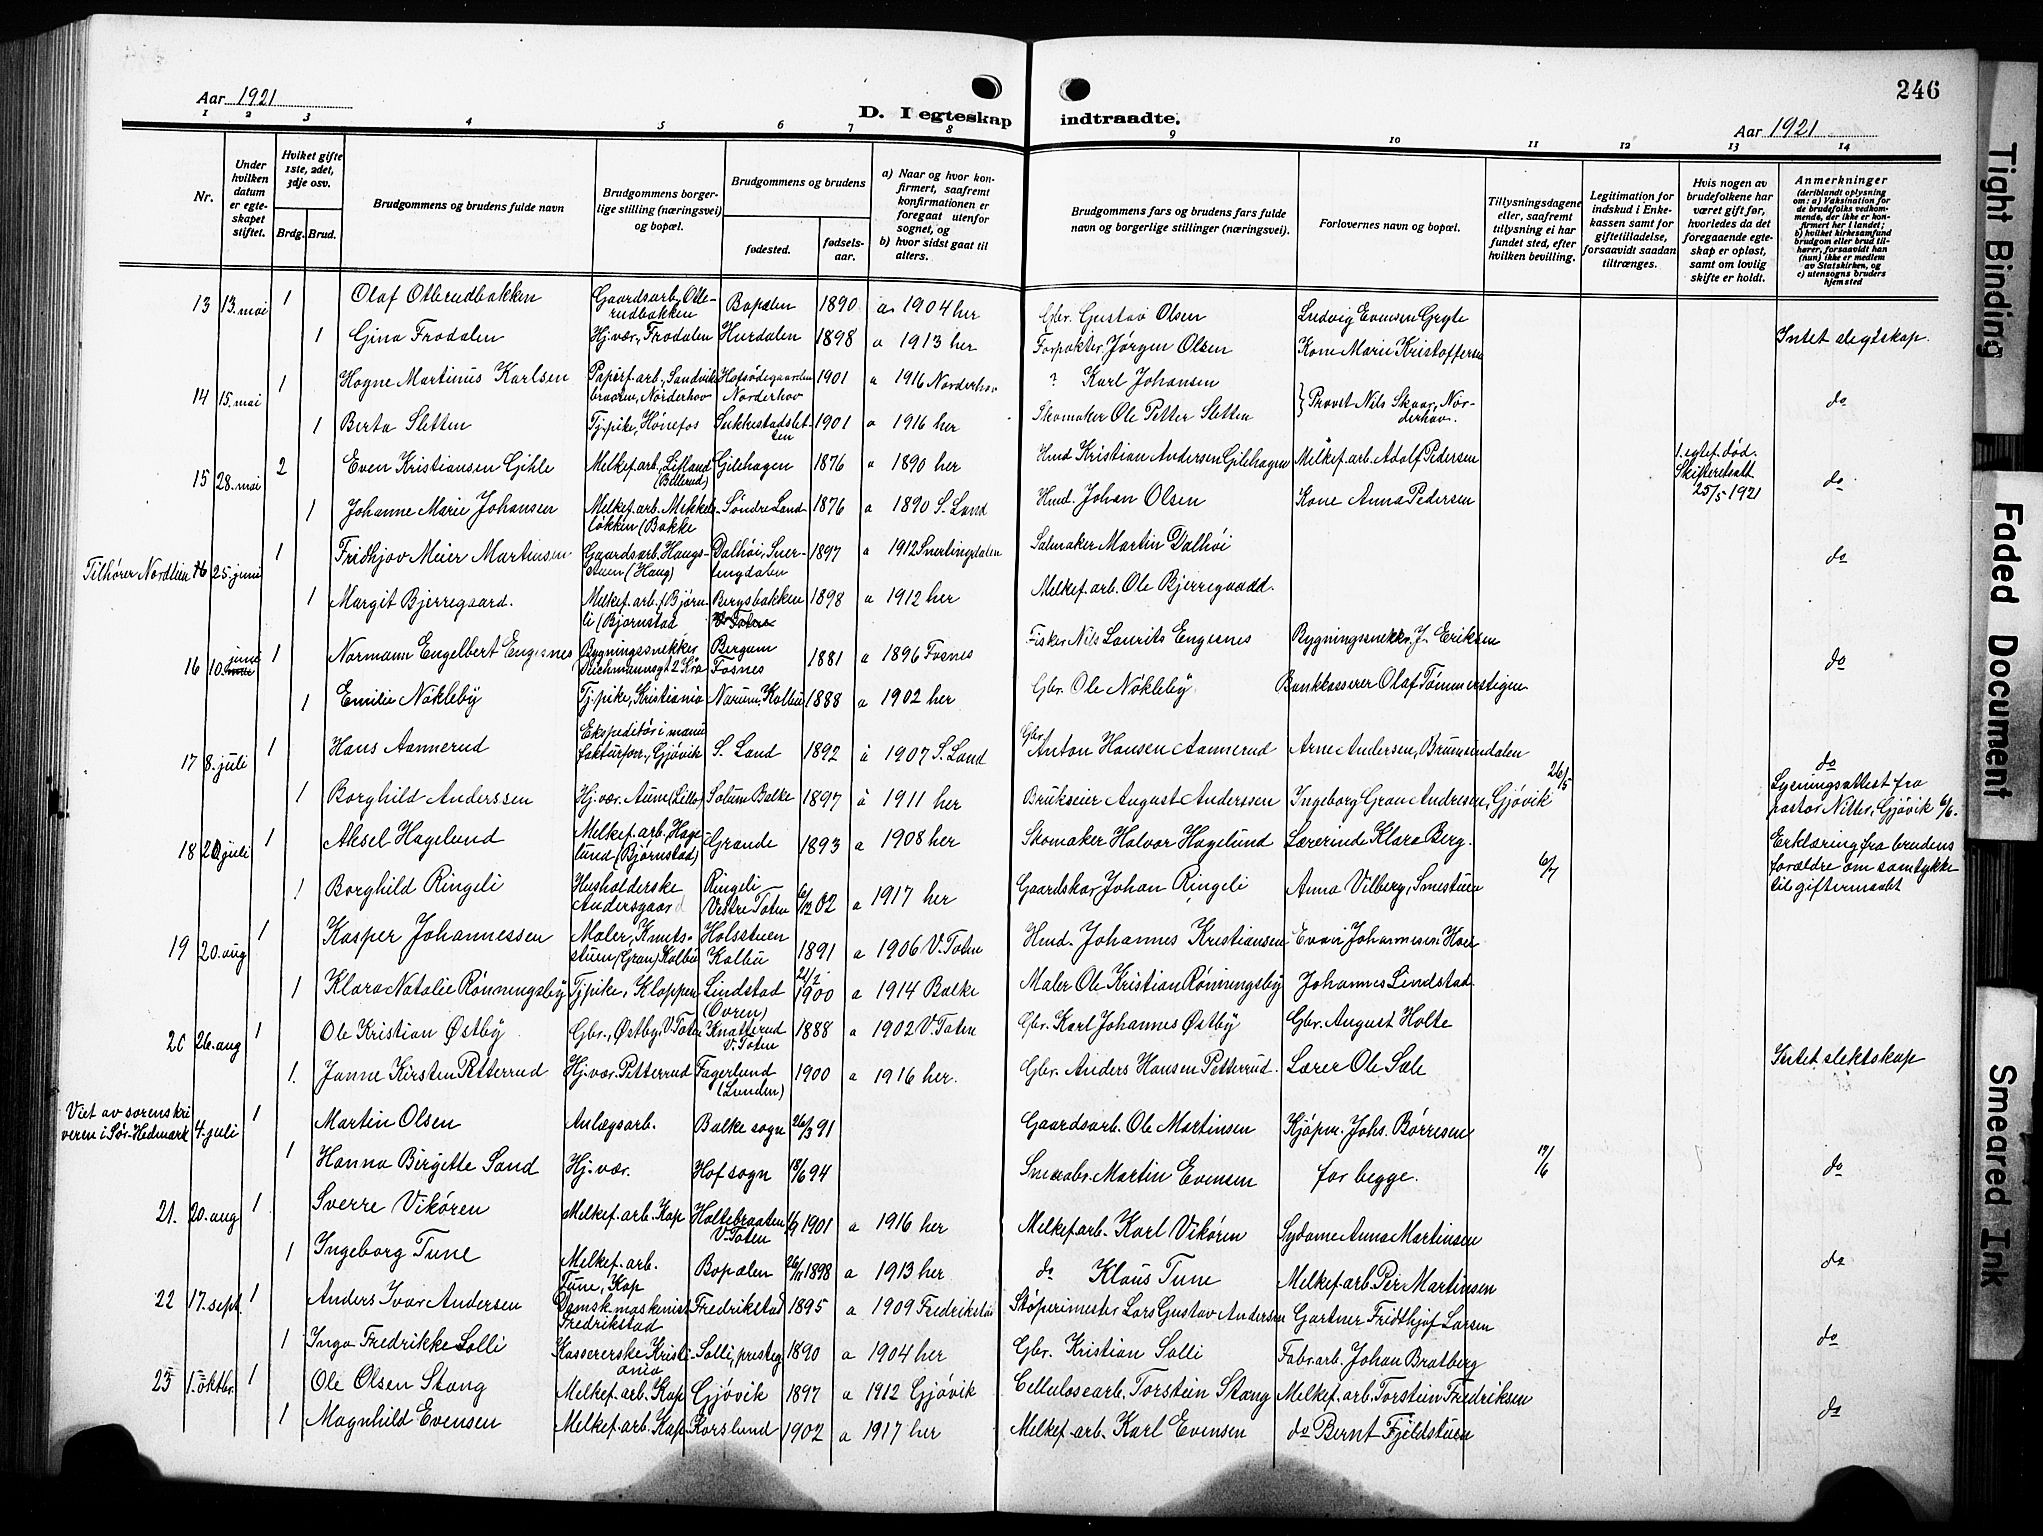 246
Aar 1921
D. I egteskap indtraadte.
Aar 1921
1 2 3 4 5 6 7 8 9 10 11 12 13 14
Nr.
Under hvilken datum er egteskapet stiftet.
Hviket gifte 1ste, 2det, 3dje osv.
Brdg. Brud.
Brudgommens og brudens fulde navn
Brudgommens borgerlige stilling (næringsvei) og bopæl.
Brudgommens og brudens
fødested.
fødselsaar.
a) Naar og hvor konfirmert, saafremt konfirmationen er foregaat utenfor sognet, og
b) hvor sidst gaat til alters.
Brudgommens fars og brudens fars fulde navn og borgerlige stillinger (næringsvei).
Forlovernes navn og bopæl.
Tillysningsdagene eller, saafremt tillysning ei har fundet sted, efter hvilken bevilling.
Legitimation for indskud i Enkekassen samt for giftetilladelse, forsaavidt saadan tiltrænges.
Hvis nogen av brudefolkene har været gift før, hvorledes da det foregaaende egteskap er opløst, samt om lovlig skifte er holdt.
Anmerkninger
(deriblandt oplysning om: a) Vaksination for de brudefolks vedkommende, der ikke er konfirmert her i landet; b) hvilket kirkesamfund brudgom eller brud tilhører, forsaavidt han (hun) ikke er medlem av Statskirken, og c) utensogns bruders hjemsted
13 13. mai 1 Olaf Otterudbakken Gaardsarb, Otterudbakken Bopælen 1890 a 1904 her Gbr. Gustav Olsen Ludvig Evensen Gryte
1 Gina Frodalen Hj.vær., Frodalen Hurdalen 1898 a 1913 her Forpakter Jørgen Olsen Kone Marie Kristoffersen Intet slegtskap.
14 15. mai 1 Hogne Martinus Karlsen Papirf. arb., Sandvikbraaten, Norderhov Hofsødegaarden Norderhov 1901 a 1916 Norderhov ? Karl Johansen } Provst Nils Skaar, Norderhov. do
1 Berta Sletten Tj.pike, Hønefos Sukkestadsletten 1901 a 1916 her Skomaker Ole Petter Sletten
15 28. mai 2 Even Kristiansen Gihle Melkef. arb., Lifland (Billerud) Gilehagen 1876 a 1890 her Hmd Kristian Andersen Gilehagen Melkef. arb. Adolf Pedersen 1. egtef. død. Skifteretsatt 25/5 1921 do
1 Johanne Marie Johansen Melkef. arb. Mekkeløkken (Bakke Søndre Land 1876 a 1890 S. Land Hmd. Johan Olsen Kone Anna Pedersen
Tilhører Nordlien 16 25. juni 1 Fridhjov Meier Martinsen Gaardsarb. Haugstuen (Haug) Dalhøi, Snertingdalen 1897 a 1912 Snertingdalen Salmaker Martin Dalhøi do
1 Margit Bjerregaard. Melkef. arb. (Bjørnli (Bjørnstad Bergsbakken V. Toten 1898 a 1912 her Melkef. arb. Ole Bjerregaard.
16 10. juni 1 Normann Engelbert Engesnes Bygningssnekker Deichmannsgt 2 Kra Bergum Fosnes 1881 a 1896 Fosnes Fisker Nils Laurits Engesnes Bygningssnekker J. Eriksen do
1 Emilie Nøkleby Tj.pike, Kristiania Narum, Kolbu 1888 a 1902 her Gbr. Ole Nøkleby Bankkasserer Olaf Tømmerstigen
17 8. juli 1 Hans Aannerud Ekspeditør i manufakturforr., Gjøvik S. Land 1892 a 1907 S. Land Gbr. Anton Hansen Aannerud Arne Andersen, Brumunddalen 26/5 do
1 Borghild Anderssen Hj.vær. Aune (Lille) Solum Balke 1897 a 1911 her Brukseier August Anderssen Ingeborg Gran Andresen, Gjøvik Lysningsattest fra pastor Nitter, Gjøvik 6/6.
18 20 juli 1 Aksel Hagelund Melkef. arb, Hagelund (Bjørnstad) Grande 1893 a 1908 her Skomaker Halvor Hagelund Lærerinde Klara Berg. 6/7 Erklæring fra brudens forældre om samtykke til giftermaalet
1 Borghild Ringeli Husholderske Andersgaard Ringeli Vestre Toten 6/12 02 a 1917 her Gaardskar, Johan Ringeli Anna Vilberg, Smestuen
19 20. aug 1 Kasper Johannessen Maler, Knutsstuen (Gran) Kolbu Holsstuen Kolbu 1891 a 1906 V. Toten Hmd. Johannes Kristiansen Even Johannesen
1 Klara Natalie Rønningsby Tj.pike, Klopper Lindstad (Ovren) 21/2 1900 a 1914 Balke Maler Ole Kristian Rønningsby Johannes Lindstad
20 26. aug 1 Ole Kristian Østby Gbr., Østby, V. Toten Knatterud V. Toten 1888 a 1902 V. Toten Gbr. Karl Johannes Østby Gbr. August Holte
1. Janne Kirsten Petterrud Hj.vær. Petterrud Fagerlund (Lunden) 1900 a 1916 her. Gbr. Anders Hansen Petterrud. Lærer Ole Sæle Intet slektskap
Viet av sorenskriveren i Sør-Hedmark 4. juli 1 Martin Olsen Anlægsarb. Balke sogn 26/3 91 Gaardsarb. Ole Martinsen Kjøpm. Johs. Børresen
1 Hanna Birgitte Sand Hj. vær. Hof sogn 18/6 94 Martin Evensen for begge. 17/6 do
21. 20. aug 1 Sverre Vikøren Melkef. arb. Kap Holtebraaten V. Toten 1/9 1901 a 1916 her Melkef arb. Karl Vikøren Sydame Anna Martinsen
1 Ingeborg Tune Melkef. arb. Tune, Kap Bopælen 26/11 1898 a 1913 her do Klaus Tune Melkef. arb Per Martinsen do
22 17. sept. 1 Anders Ivar Andersen Dampsk. maskinist Fredrikstad Fredrikstad 1895 a 1909 Fredrikstad Støperimester Lars Gustav Andersen Gartner Fridthjof Larsen
1 Inga Fredrikke Solli Kassererske Kristiania Solli, presteg 1890 a 1904 her Gbr. Kristian Solli Fabr. arb. Johan Bratberg do
23 1. oktbr. 1 Ole Olsen Stang Melkef. arb. Kap Gjøvik 1897 a 1912 Gjøvik Cellulosearb. Torstein Stang Melkef. arb. Torstein Fredriksen
1 Magnhild Evensen Melkef. arb. Kap Korslund 1902 a 1917 her Melkef. arb. Karl Evensen do Bernt Fjeldstuen do
Tight Binding
Faded Document
Smeared Ink